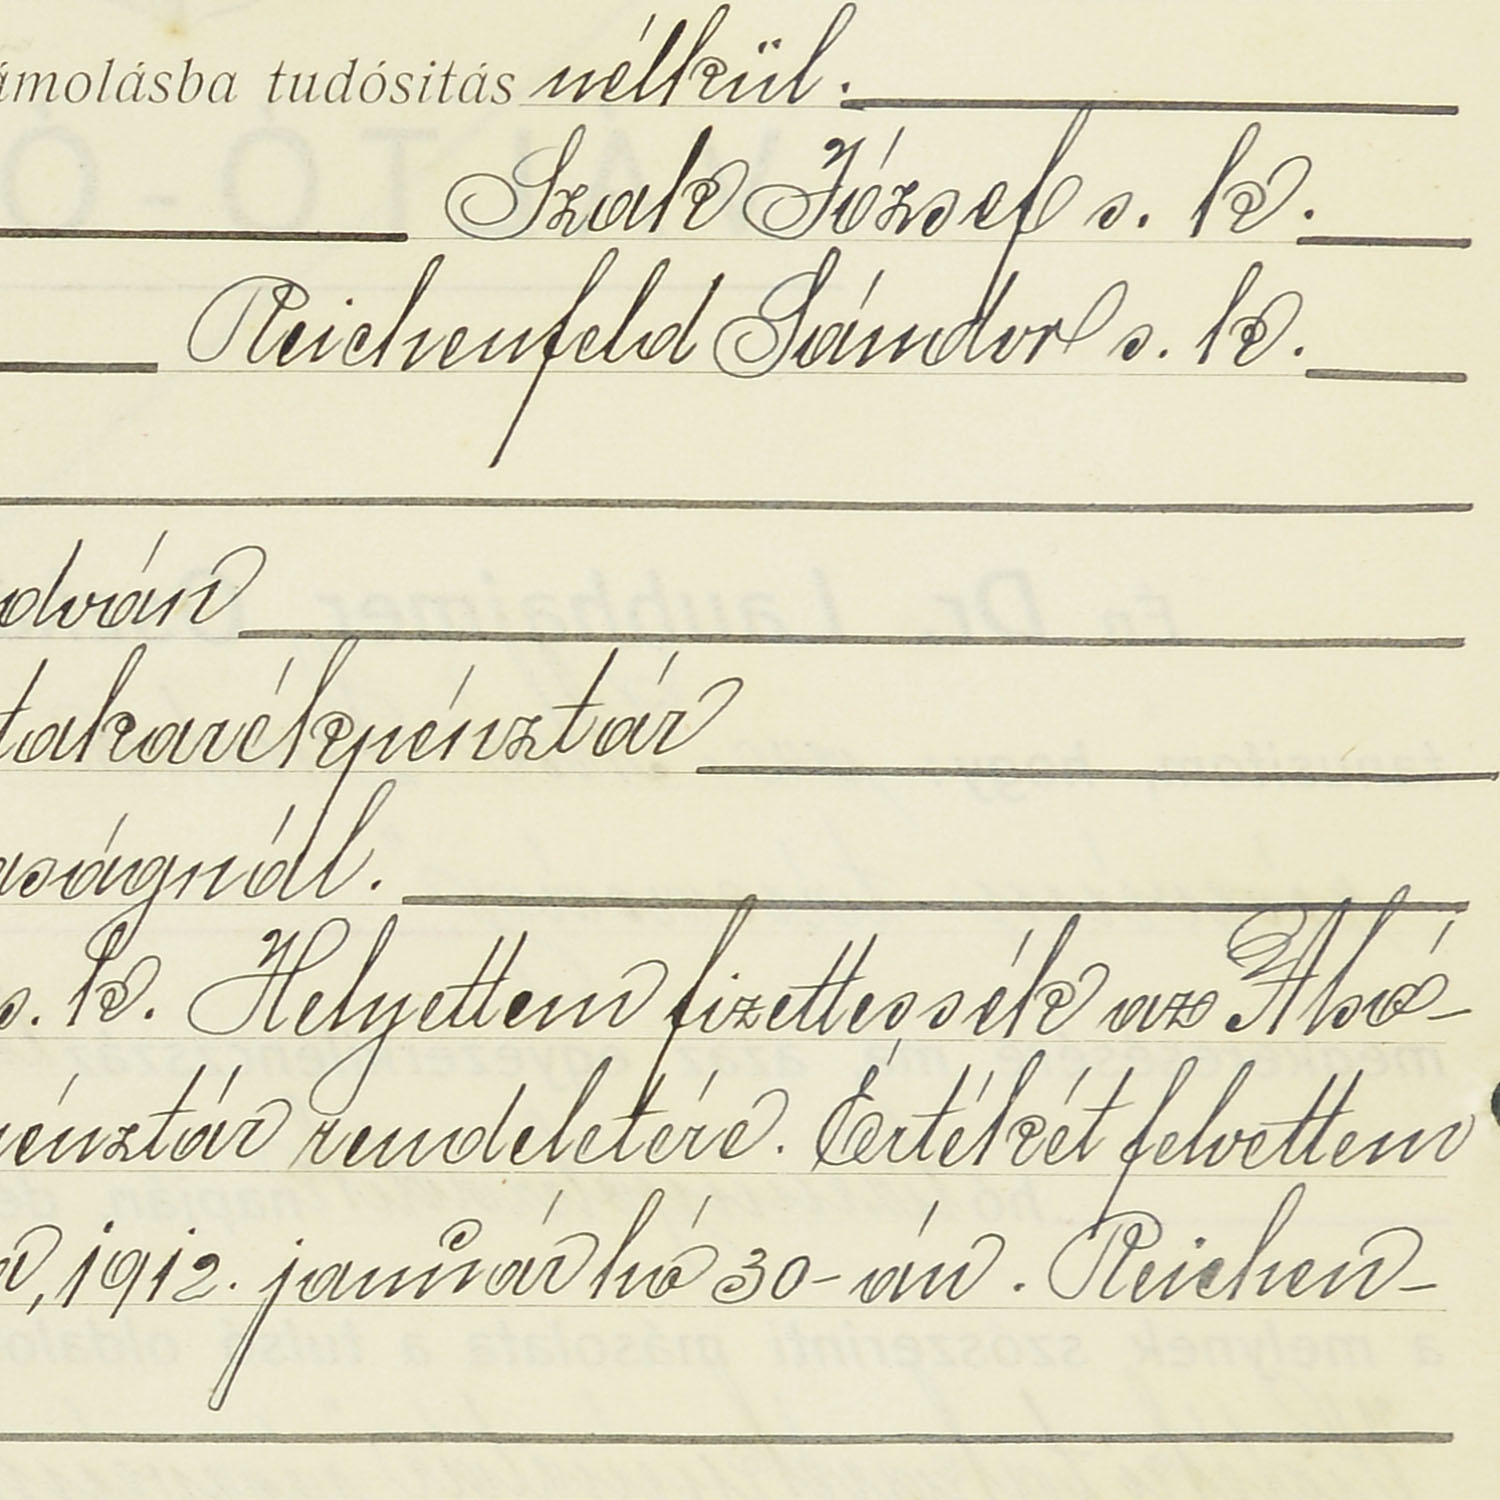 ámolásba tudósitás nélkül.
Szak József s. k.
Reichenfeld Sándor s. k.
dván
takarékpénztár
aságnál.
s. k. Helyettem fizettessék az Alsó-
pénztár rendeletére. Értékét felvettem
1912. január hó 30-án. Reichen-